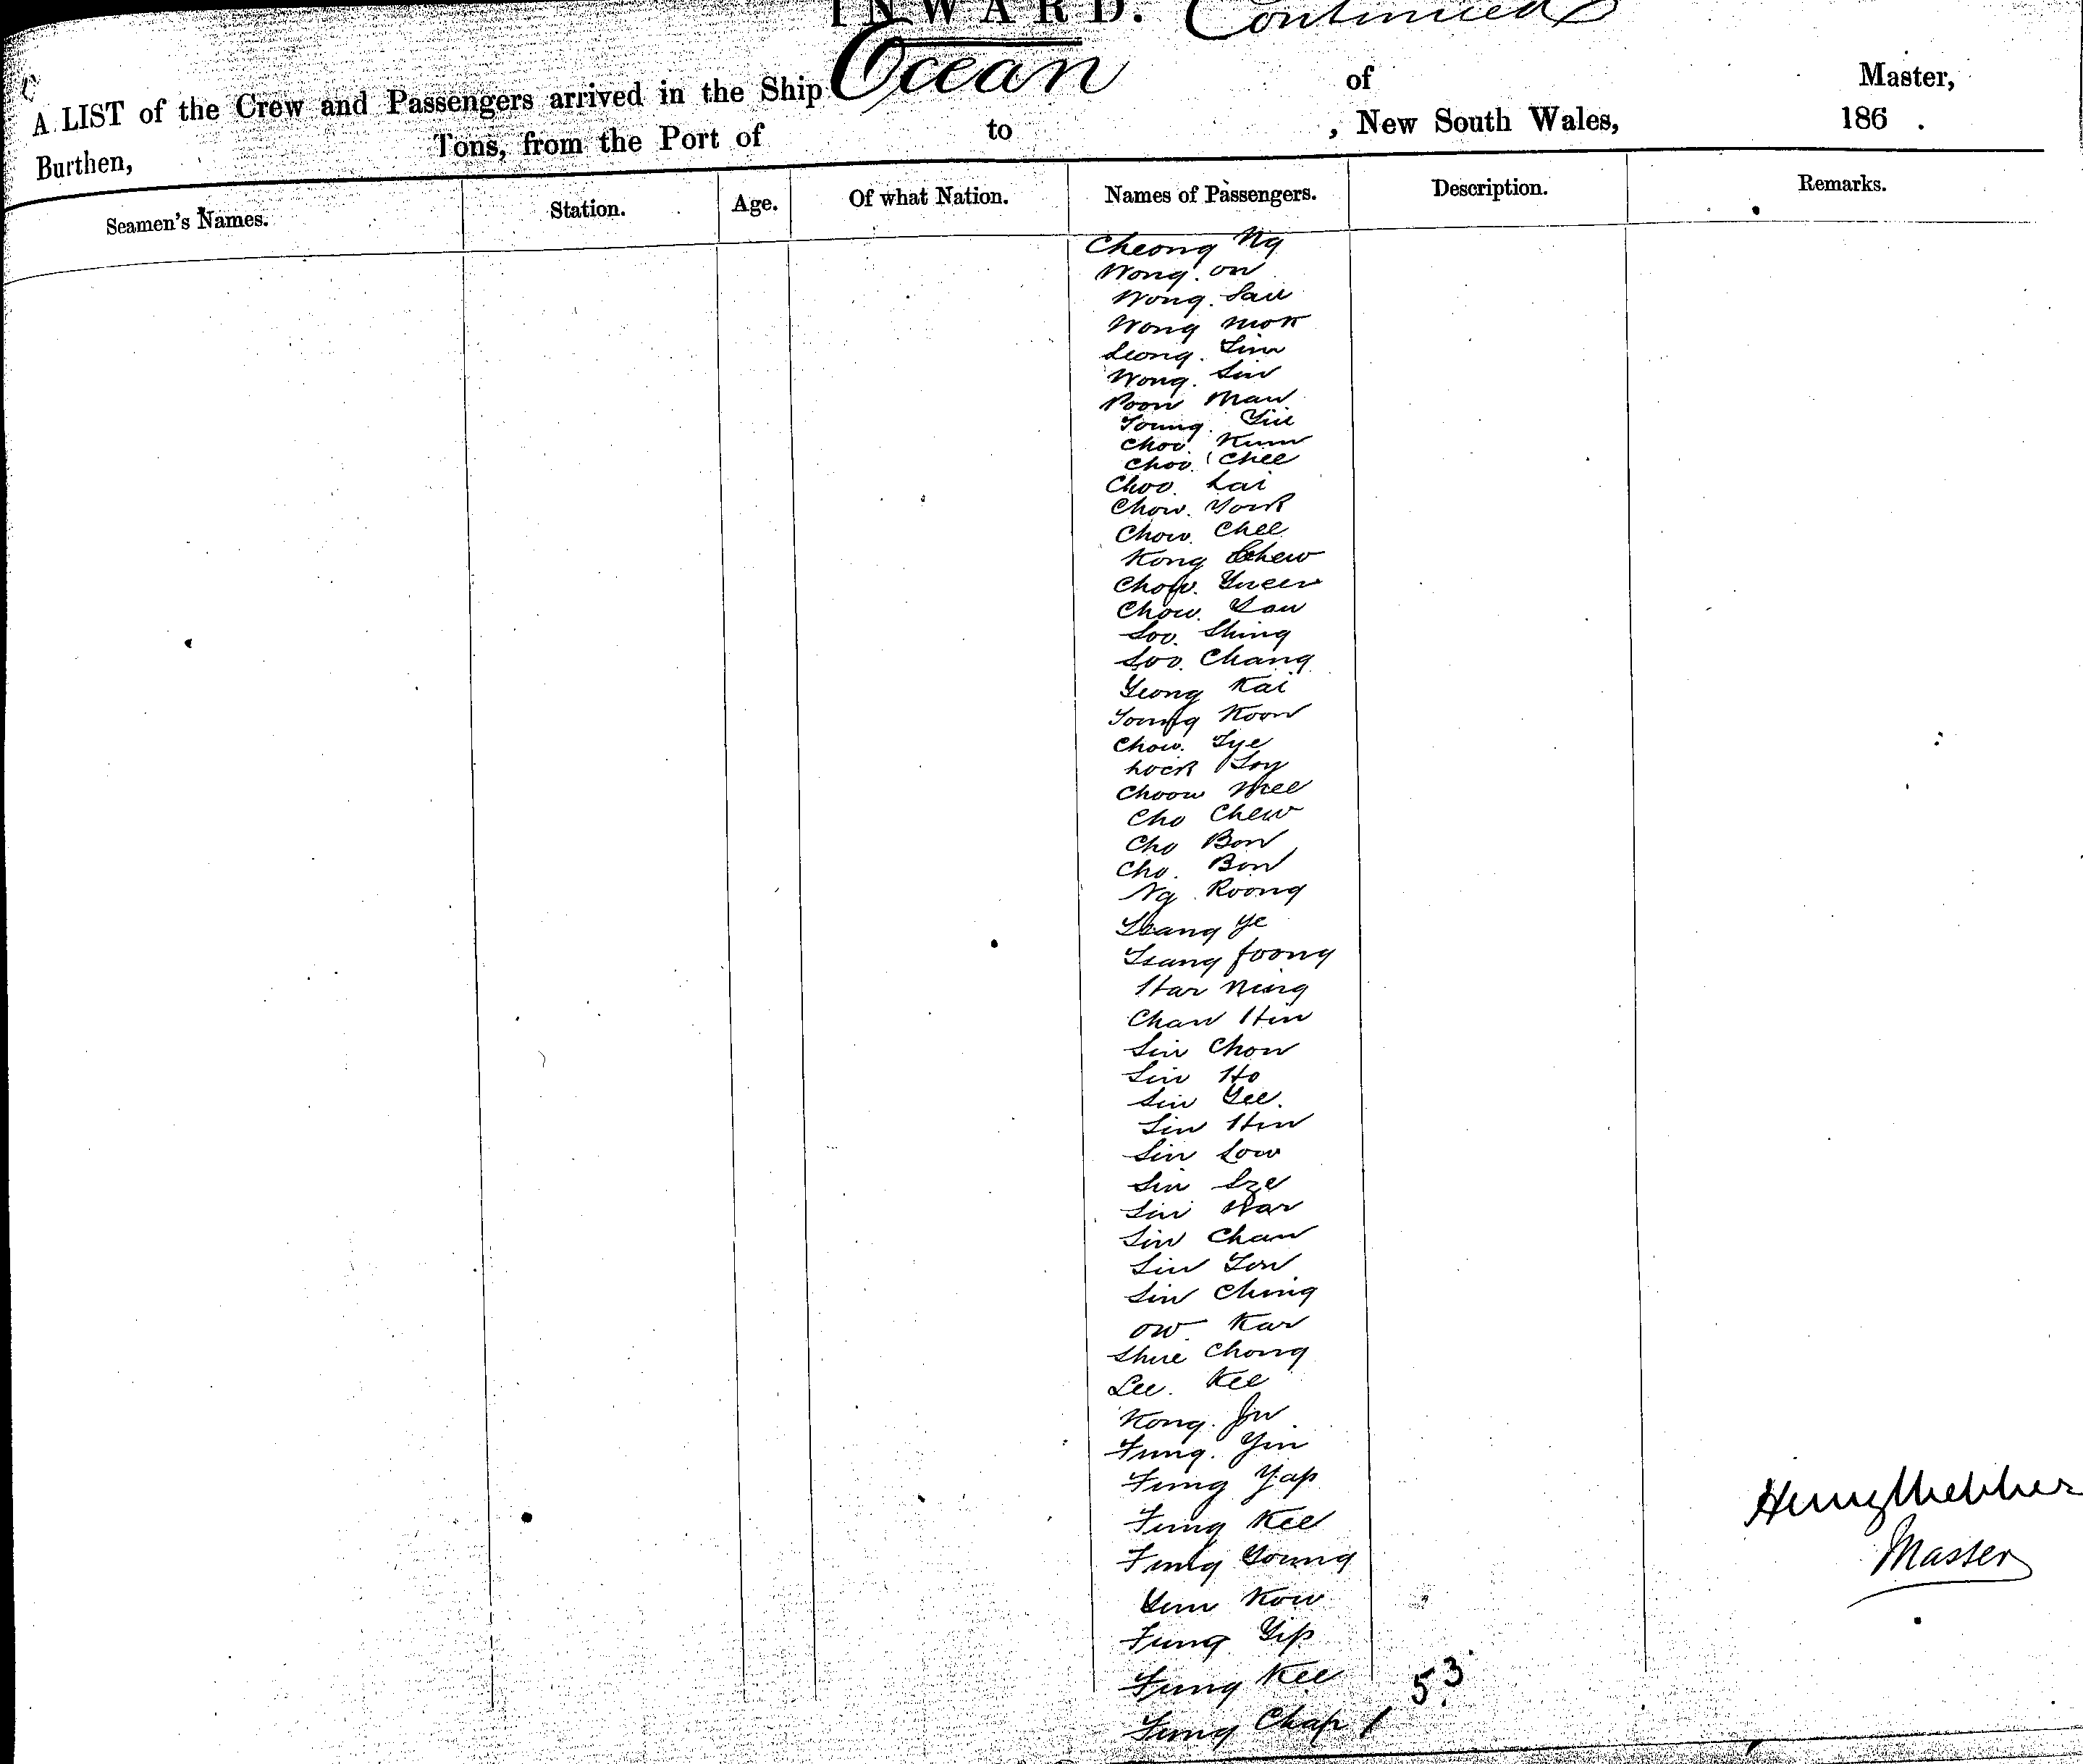 INWARD. Continued
A LIST of the Crew and Passengers arrived in the Ship Ocean of Master,
Burthen, Tons, from the Port of to , New South Wales, 186 .
Seamen's Names. Station. Age. Of what Nation. Names of Passengers. Description. Remarks.
Cheong Ng
Wong. on
Wong. Sau
Wong Mok
Leong. Sim
Wong. Sin
Poon Man
Young.
Choo. Kum
Choo. Chee
Choo. Lai
Chow. York
Chow. Chee
Kong Chew
Chow. Yueen
Chow. Yan
Soo. Shing
Soo. Chang
Yeong Kai
Young Koon
Chow. Tye
Lock Loy
Choon Mee
Cho Chew
Cho Bon
Cho. Bon
Ng Koong
Tsang Ye
Tsang Foong
Har Ning
Chan Hin
Lin Chow
Lin Ho
Lin Yee.
Lin Hin
Lin Low
Lin Sze
Lin War
Lin Chan
Lin Yon
Lin Ching
Ow Kar
Shue Chong
Lee. Kee
Kong. Jin
Fung. Yin
Fung Yap
Fung Kee
Fung Young
Yum Kow
Fung Yip
Fung Kee 53
Fung Chap 1
Henry Webber
Master